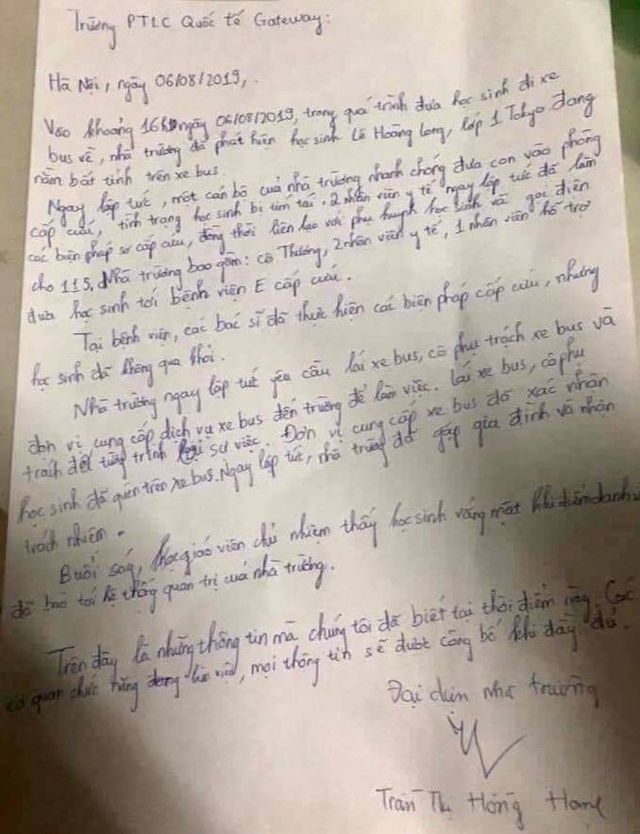 Trường PTLC Quốc tế Gateway:
Hà Nội, ngày 06/08/2019,.
Vào khoảng 16h ngày 06/08/2019, trong quá trình đưa học sinh đi xe
bus về, nhà trường đã phát hiện học sinh Lê Hoàng Long, lớp 1 Tokyo đang
nằm bất tỉnh trên xe bus.
Ngay lập tức, một cán bộ của nhà trường nhanh chóng đưa con vào phòng
cấp cứu, tình trạng học sinh bị tím tái. 2 nhân viên y tế ngay lập tức đã làm
các biện pháp sơ cấp cứu, đồng thời liên lạc với phụ huynh học sinh và gọi điện
cho 115. Nhà trường bao gồm: cô Thương, 2 nhân viên y tế, 1 nhân viên hỗ trợ
đưa học sinh tới bệnh viện E cấp cứu.
Tại bệnh viện, các bác sĩ đã thực hiện các biện pháp cấp cứu, nhưng
học sinh đã không qua khỏi.
Nhà trường ngay lập tức yêu cầu lái xe bus, cô phụ trách xe bus và
đơn vị cung cấp dịch vụ xe bus đến trường để làm việc. Lái xe bus, cô phụ
trách đã tường trình lại sự việc. Đơn vị cung cấp xe bus đã xác nhận
học sinh đã quên trên xe bus. Ngay lập tức, nhà trường đã gặp gia đình và nhận
trách nhiệm.
Buổi sáng, giáo viên chủ nhiệm thấy học sinh vắng mặt khi điểm danh
đã báo tới hệ thống quản trị của nhà trường.
Trên đây là những thông tin mà chúng tôi đã biết tại thời điểm này. Các
cơ quan chức năng đang làm việc, mọi thông tin sẽ được công bố khi đầy đủ.
Đại diện nhà trường
Trần Thị Hồng Hạnh